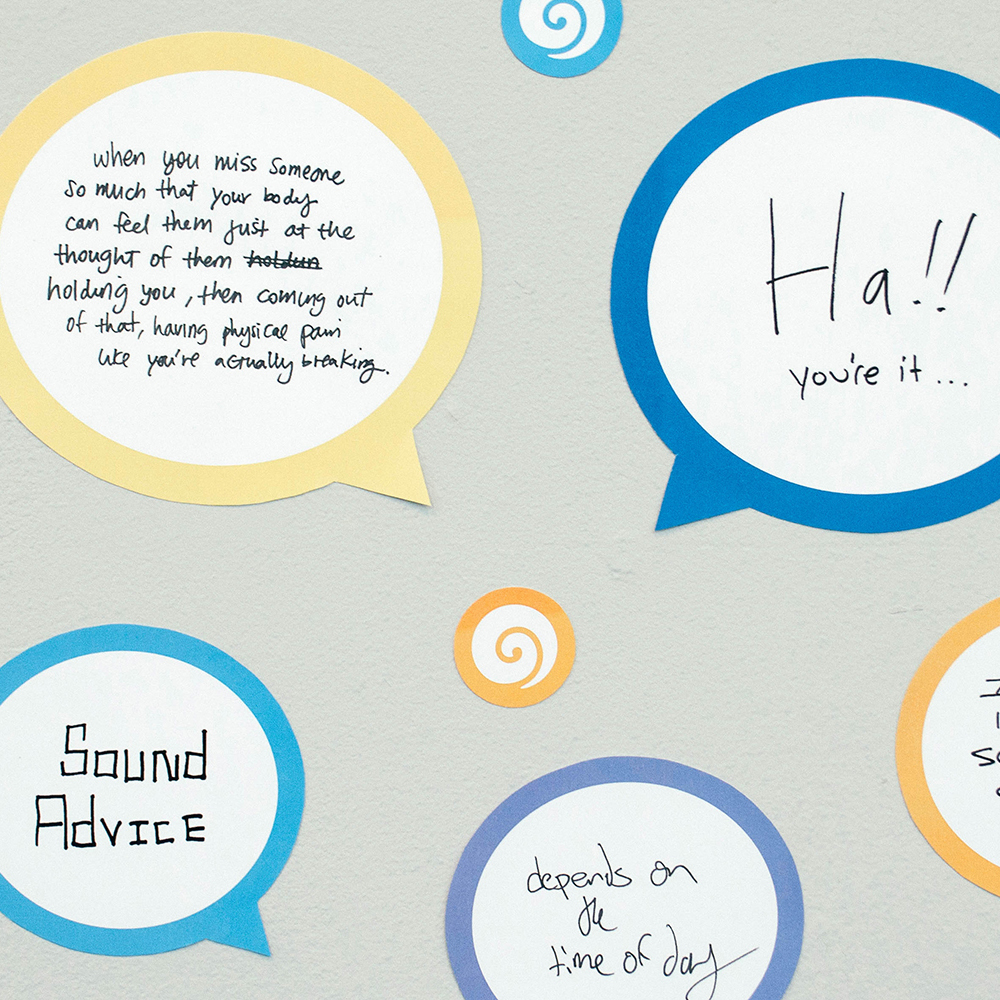 when you miss someone
so much that your body
can feel them just at the
thought of them
holding you, then coming out
of that, having physical pain
like you're actually breaking.
Ha!!
you're it...
Sound
Advice
depends on
the
time of day